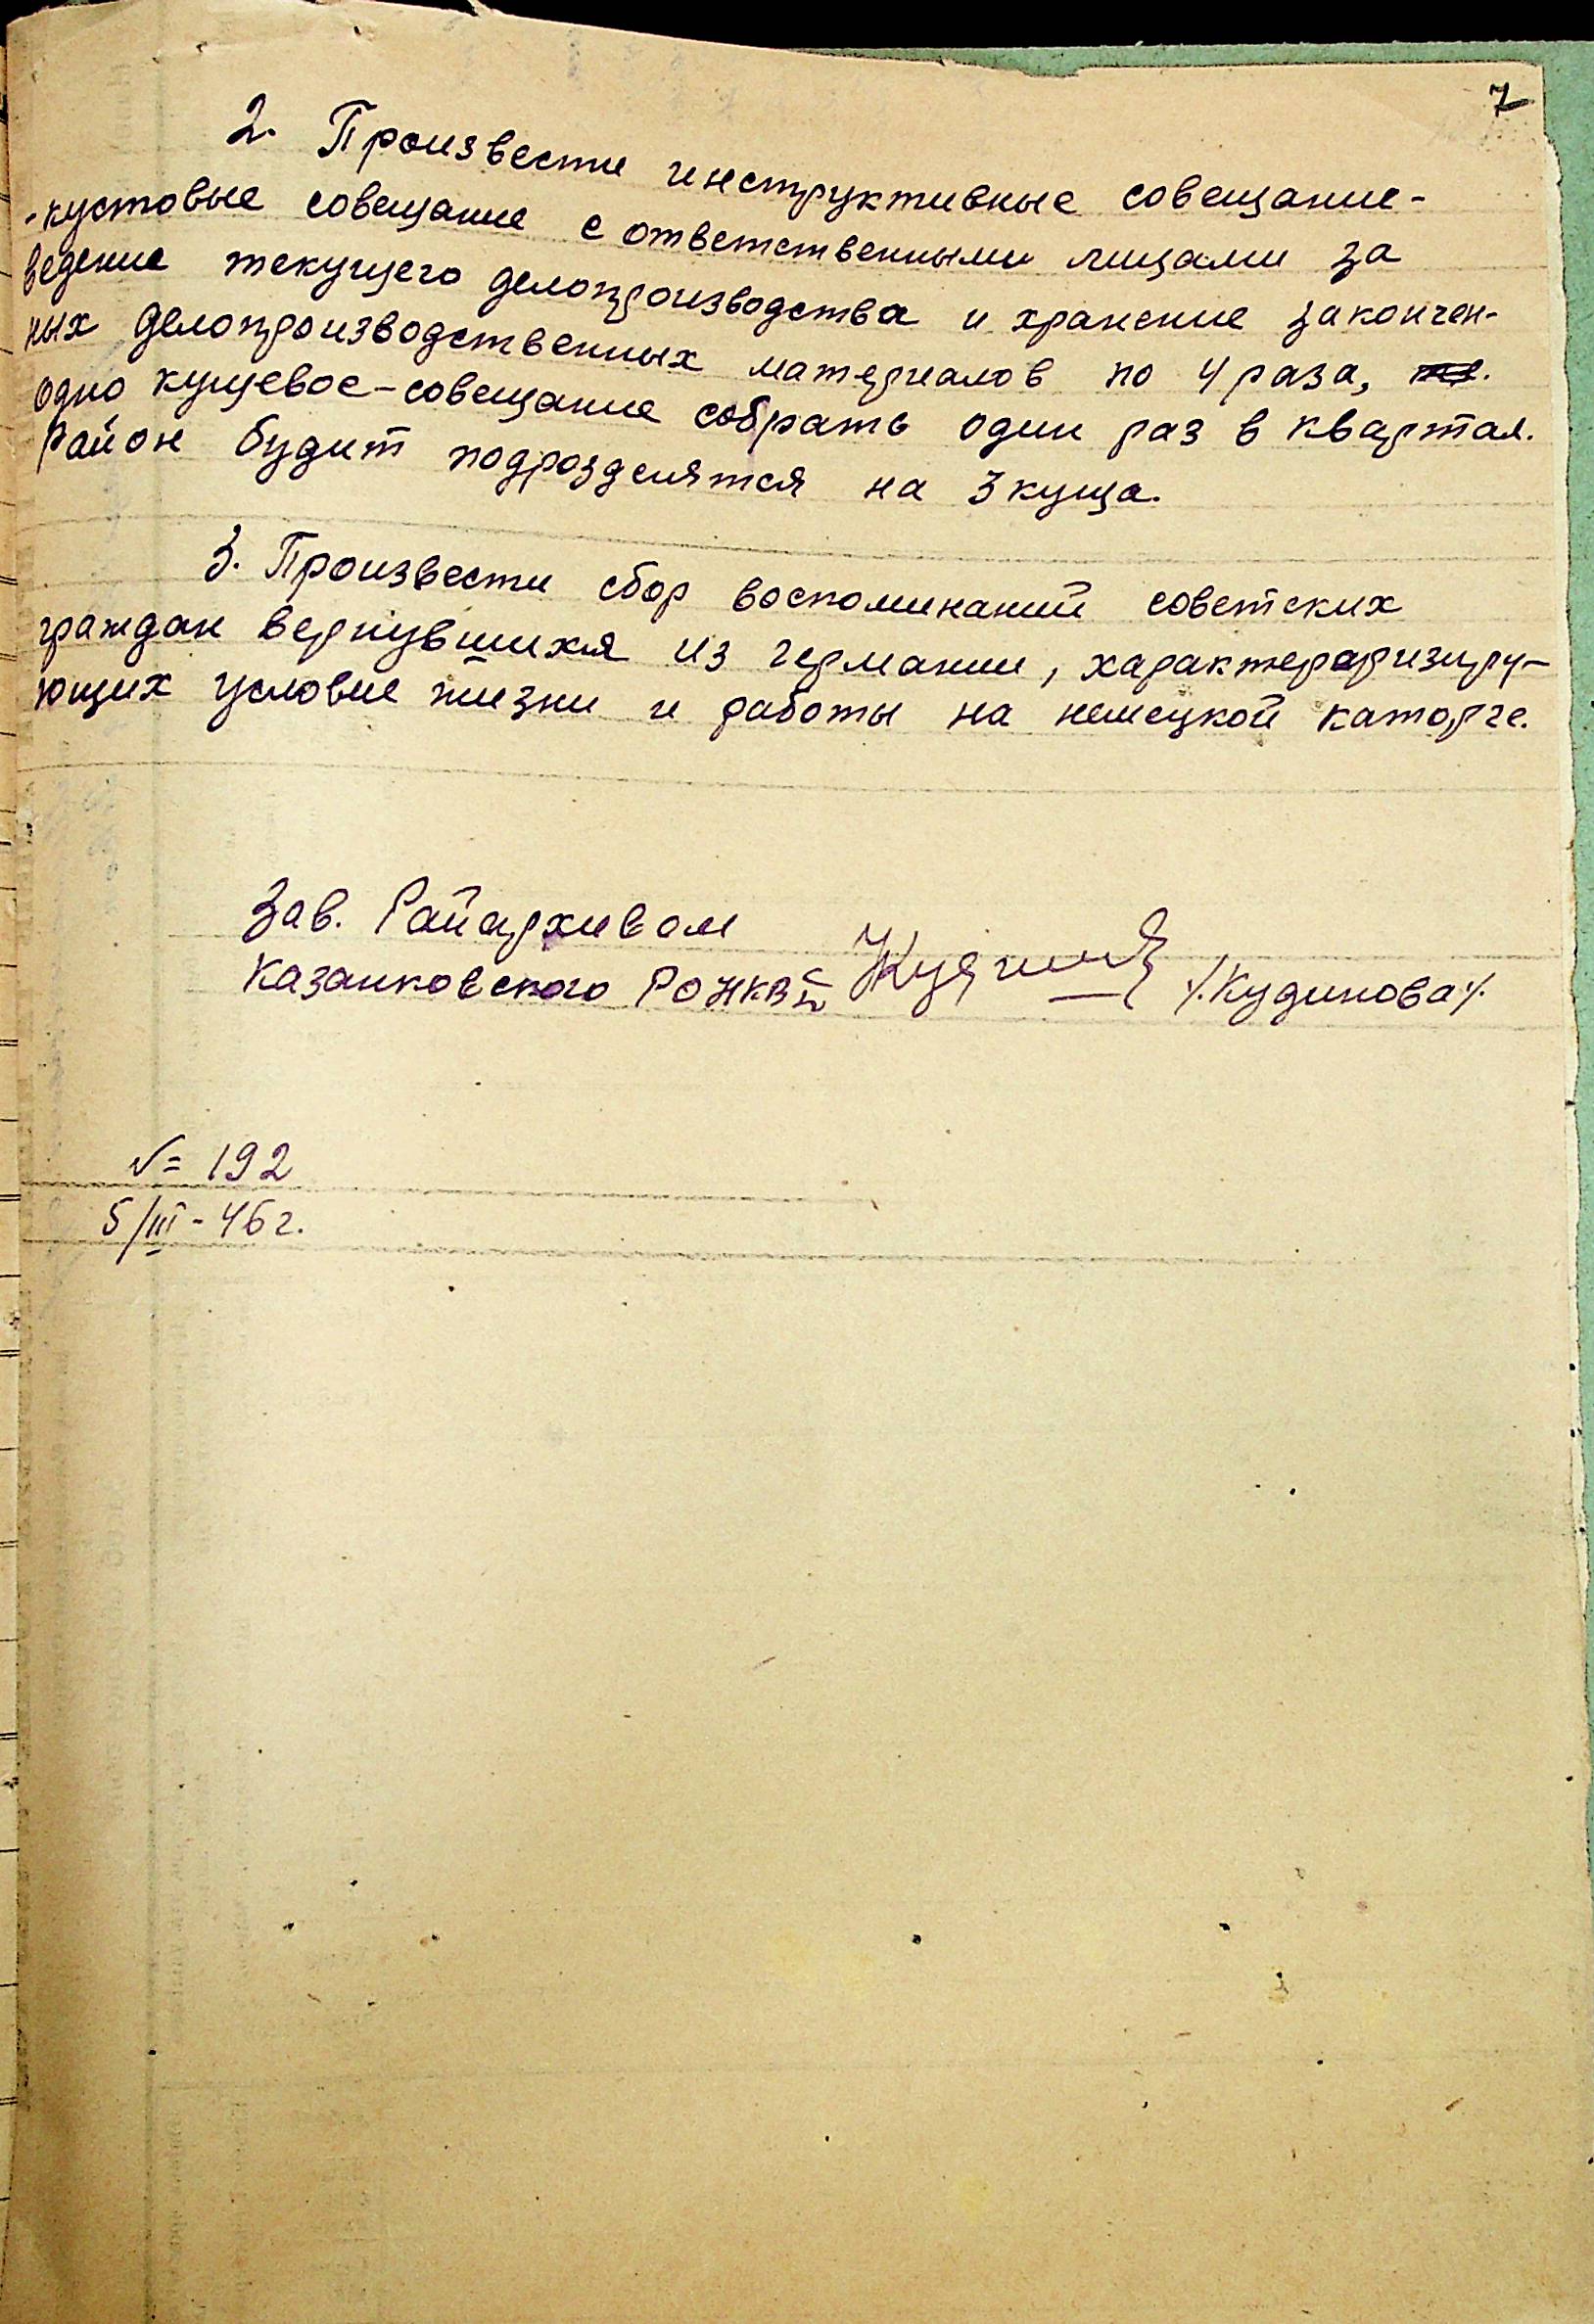 7
2. Произвести инструктивные совещание-
-кустовые совещание с ответственными лицами за
ведение текущего делопроизводства и хранение закончен-
ных делопроизводственных материалов по 4 раза,
одно кущевое-совещание собрать один раз в квартал.
Район будит подрозделятся на 3 куща.
3. Произвести сбор воспоминаний советских
граждан вернувшихся из германии, характераризиру-
ющих условие жизни и работы на немецкой каторге.
Зав. Райархивом
Казанковского РО НКВД /.Кудинова/.
№ 192
5/III-46г.